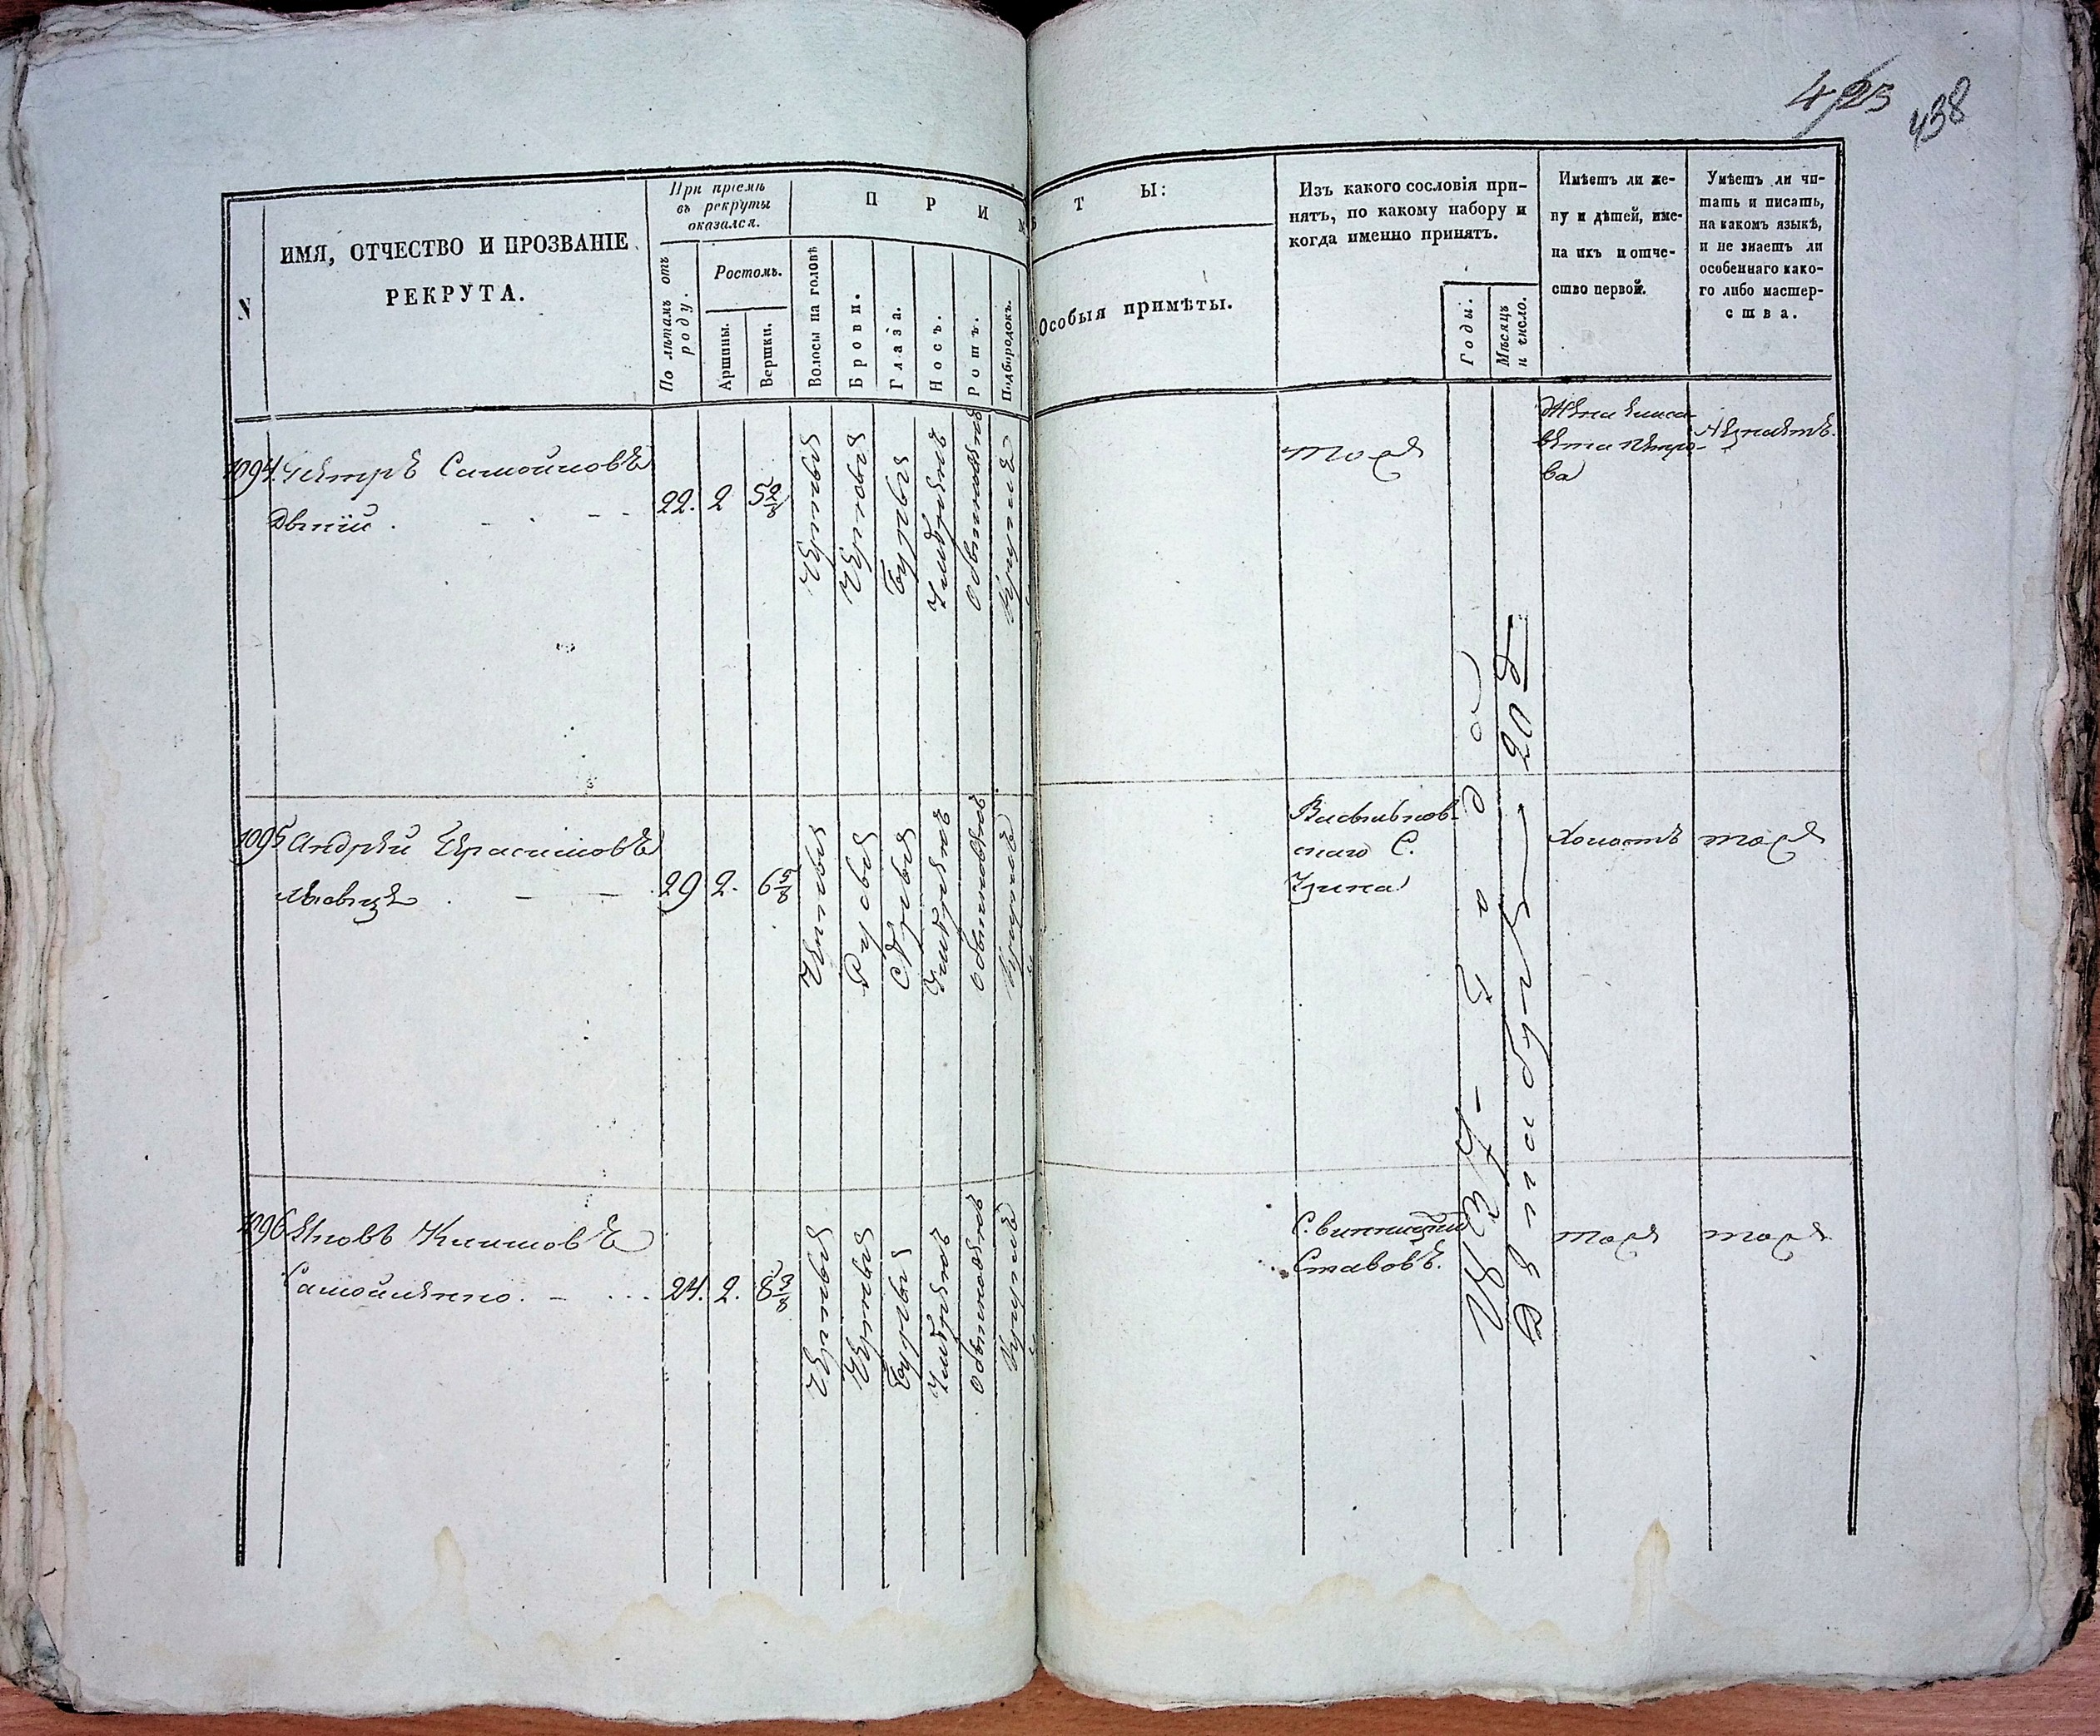 423
438
N
ИМЯ, ОТЧЕСТВО И ПРОЗВАНІЕ
РЕКРУТА.
При пріемѣ
въ рекруты
оказался.
По лѣтамъ отъ
роду.
Ростомъ.
Аршины.
Вершки.
П Р И М
Волосы на головѣ
Брови.
Глаза.
Носъ.
Ротъ.
Подбородокъ.
Ѣ Т Ы:
Особыя примѣты.
Изъ какого сословія при-
нятъ, по какому набору и
когда именно принятъ.
Годы.
Мѣсяцъ
и число.
Имѣетъ ли же-
ну и дѣтей, име-
на ихъ и отче-
ство первой.
Умѣетъ ли чи-
тать и писать,
на какомъ языкѣ,
и не знаетъ ли
особеннаго како-
го либо мастер-
ства.
1094. Петръ Самойловъ
22. 2 5 2/8
Черныя
Черныя
Умѣренъ
Обыкновенъ
Круглъ
тоже
Жена Елиса-
вета Петро-
ва
Незнаетъ.
1095 Андрей Герасимовъ
29 2. 6 5/8
Русыя
Сѣрыя
Умѣренъ
Обыкновенъ
Круглъ
Васильков-
скаго С.
Холостъ
тоже
1096 Яковъ Климовъ
Самойленко.
24. 2. 8 3/8
Черныя
Черныя
Умѣренъ
Обыкновенъ
Круглъ
Ставовъ.
тоже
тоже
1837 - года
Декабря 20 д